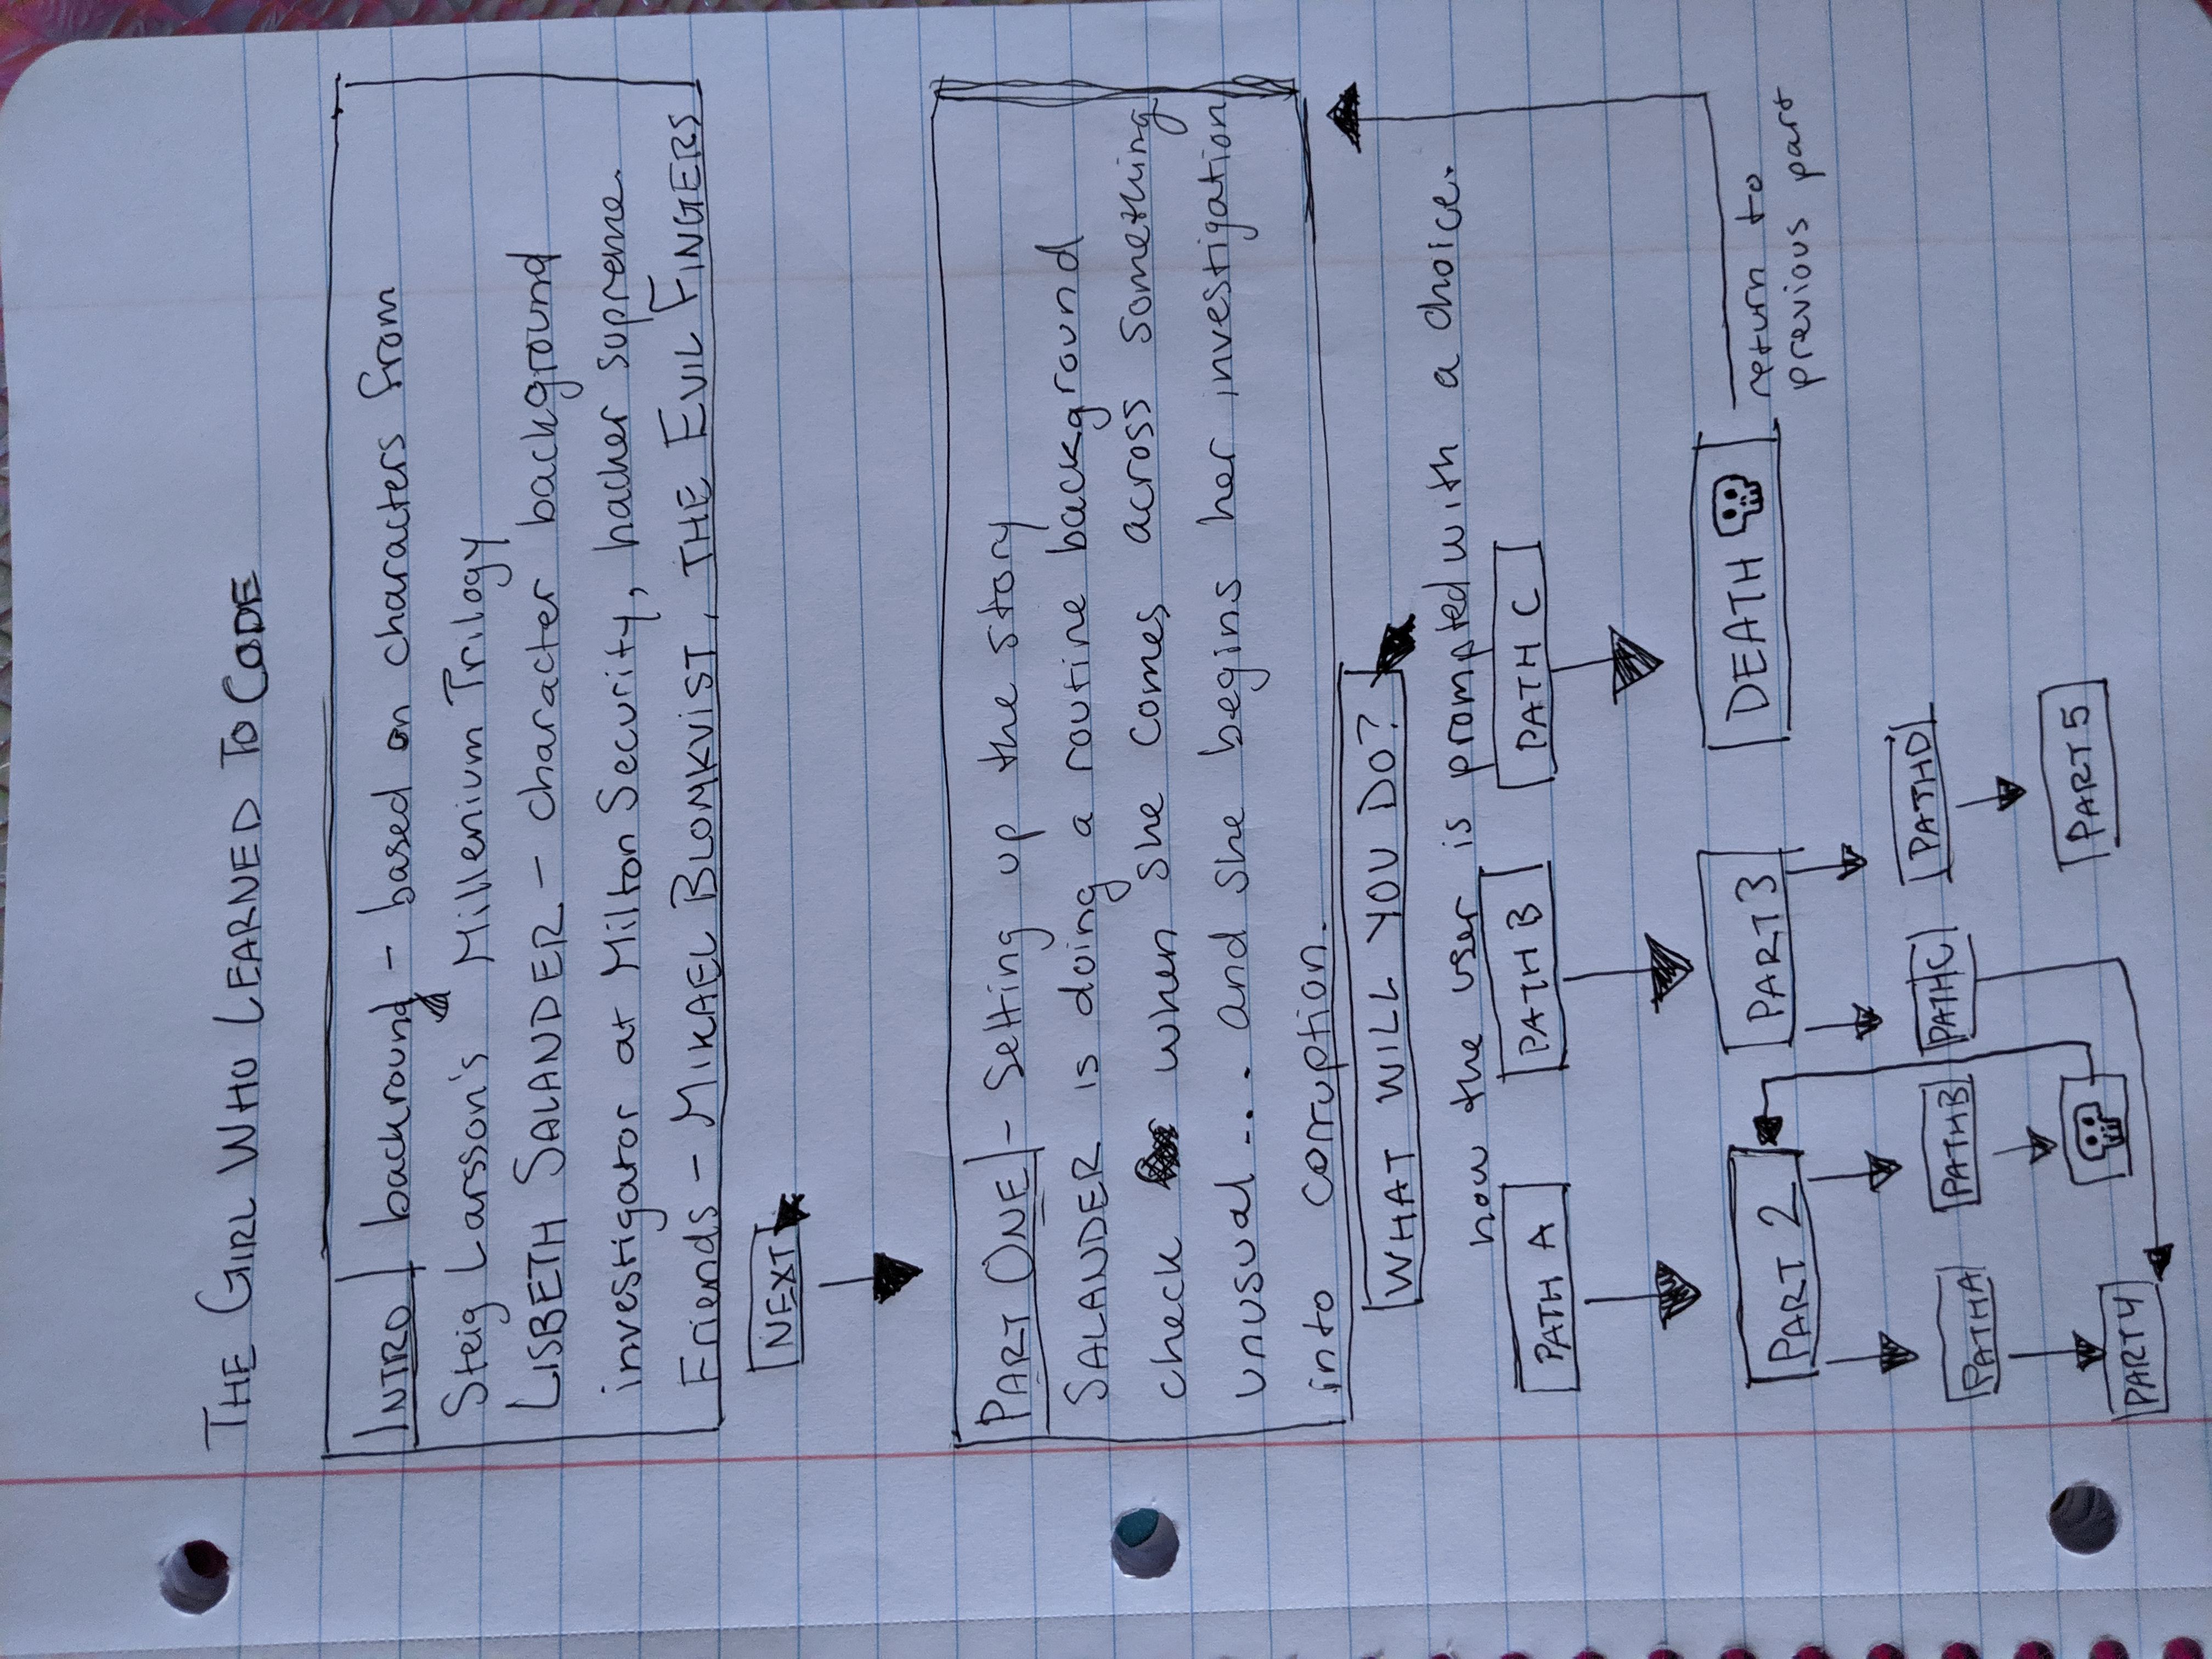 THE GIRL WHO LEARNED TO CODE
INTRO backround - based on characters from
Steig Larsson's Millenium Trilogy
LISBETH SALANDER - character background
investigator at Milton Security, hacker supreme.
Friends - MIKAEL BLOMKVIST, THE EVIL FINGERS
NEXT
PART ONE - Setting up the story
SALANDER is doing a routine background
check when she comes across something
unusual.... and she begins her investigation
into corruption.
WHAT WILL YOU DO?
now the user is prompted with a choice.
PATH A PATH B PATH C
PART 2 PART 3 DEATH
return to
previous part
PATH A PATH B PATH C PATH D
PART 4 PART 5